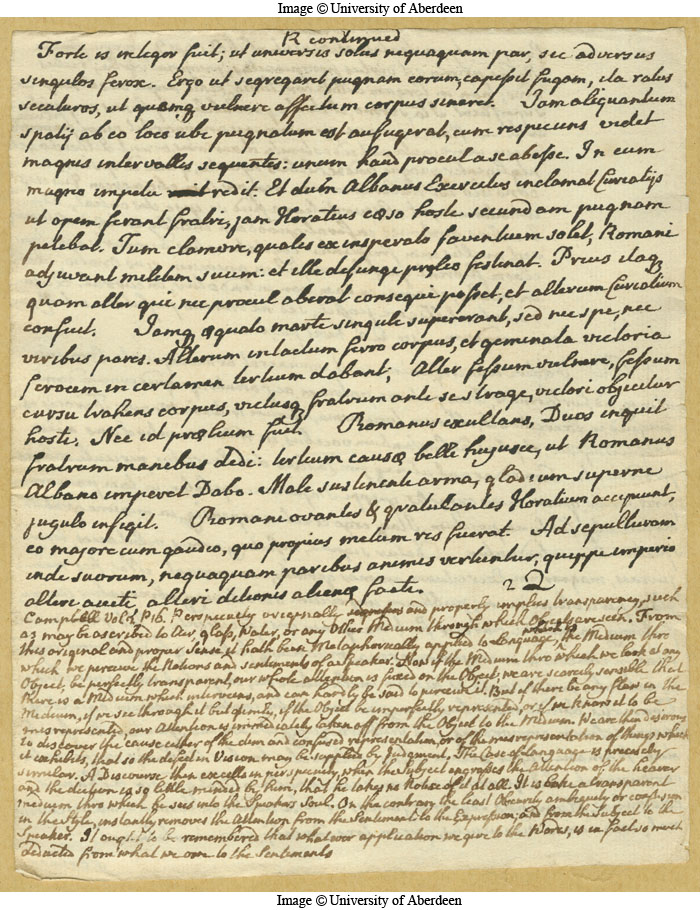 Image © University of Aberdeen
R continued
Forte is integer fuit; ut universis solus nequaquam par, sic adversus
singulos ferox. Ergo ut segregaret pugnam eorum, capessit fugam, ita ratus
secuturos, ut quemq vulnere affectum corpus sineret. Jam aliquantum
spatij ab eo loco ubi pugnatum est aufugerat, cum respiciens videt
magnis intervallis sequentes: unum haud procul a se abesse. In eum
magno impetu redit. Et dum Albanus Exercitus inclamat Curiatijs
ut opem ferant fratri, jam Horatius cæso hoste secundam pugnam
petebat. Tum clamore, qualis ex insperato faventium solet, Romani
adjuvant militem suum: et ille defungi prælio festinat. Prius itaq
quam alter qui nec procul aberat consequi posset, et alterum Curiatium
conficit. Jamq æquato marte singuli supererant, sed nec spe, nec
viribus pares. Alterum intactum ferro corpus, et geminata victoria
ferocem in certamen tertium dabant; Alter fessum vulnere, fessum
cursu trahens corpus, victusq fratrum ante se strage, victori objicitur
hosti. Nec id prælium fuit. Romanus exultans, Duos inquit
fratrum manibus dedi: tertium causæ belli hujusce, ut Romanus
Albano imperet Dabo. Male sustinenti arma, gladium superne
jugulo infigit. Romani ovantes & gratulantes Horatium accipiunt,
eo majore cum gaudio, quo propius metum res fuerat. Ad sepulturam
inde suorum, nequaquam paribus animis vertuntur, quippe imperio
alteri aucti, alteri ditionis alienæ facti.
2 Q
Campbell Vol 2 P16. Perspicuity originally and properly implies transparency, such
as may be ascribed to Air, glass, Water, or any Other Medium through which Objects are seen. From
this original and proper sense, it hath been Metaphorically applied to Language, the Medium thro
which we perceive the Notions and sentiments of a Speaker. Now if the Medium thro which we look at any
Object, be perfectly transparent, our whole attention is fixed on the Object, we are scarcely sensible that
there is a Medium which intervenes, and can hardly be said to perceive it. But if there be any flaw in the
Medium, if we see through it but dimly, if the Object be imperfectly represented, or if we know it to be
misrepresented, our Attention is immediately taken off from the Object to the Medium. We are then desirous
to discover the cause either of the dim and confused representation, or of the misrepresentation of things which
it exhibits, that so the defect in Vision may be supplied by Judgment, The Case of Language is precisely
similar. A Discourse then excells in perspicuity when the Subject engrosses the Attention of the hearer
and the diction is so little minded by him, that he takes no Notice of it at all. It is like a transparent
medium thro which he sees into the Speakers Soul. On the contrary the least Obscurity ambiguity or confusion
in the Style, instantly removes the Attention from the Sentiment to the Expression; and from the Subject to the
Speaker. It ought to be remembered that whatever application we give to the Words, is in fact so much
deducted from what we owe to the Sentiments
Image © University of Aberdeen